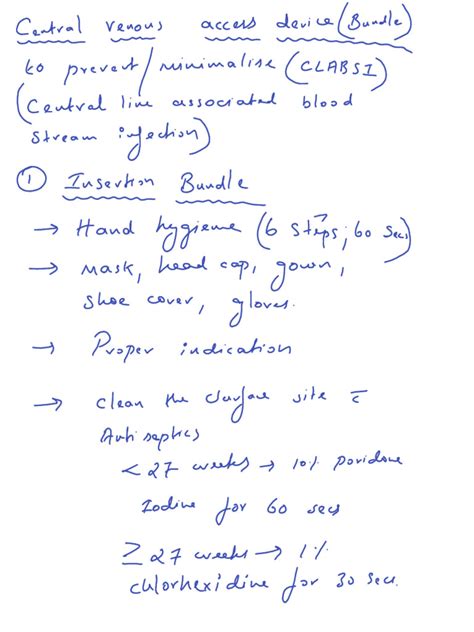 Central venous access device (Bundle)
to prevent/minimalise (CLABSI)
(Central line associated blood
stream infection)
① Insertion Bundle
→ Hand hygiene (6 steps, 60 secs)
→ Mask, head cap, gown,
shoe cover, gloves.
→ Proper indication
→ Clean the surface site c̄
Antiseptics
< 27 weeks → 10% povidone
Iodine for 60 secs
≥ 27 weeks → 1%
chlorhexidine for 30 secs.